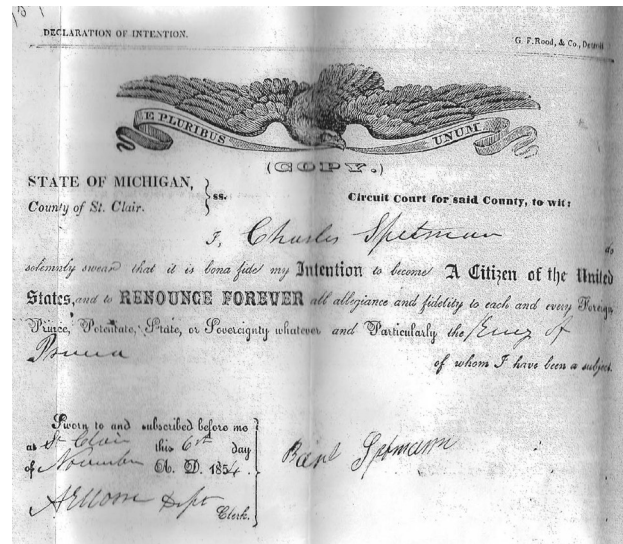 DECLARATION OF INTENTION.
G. F. Rood, & Co., Detroit
E PLURIBUS UNUM
(COPY.)
STATE OF MICHIGAN,
County of St. Clair.
} ss.
Circuit Court for said County, to wit:
I, Charles Spetman do
solemnly swear that it is bona fide my Intention to become A Citizen of the United
States, and to RENOUNCE FOREVER all allegiance and fidelity to each and every Foreign
Prince, Potentate, State, or Sovereignty whatever and Particularly the King of
Prussia
of whom I have been a subject.
Sworn to and subscribed before me
at St Clair this 6th day
of November A. D. 1854.
Clerk.